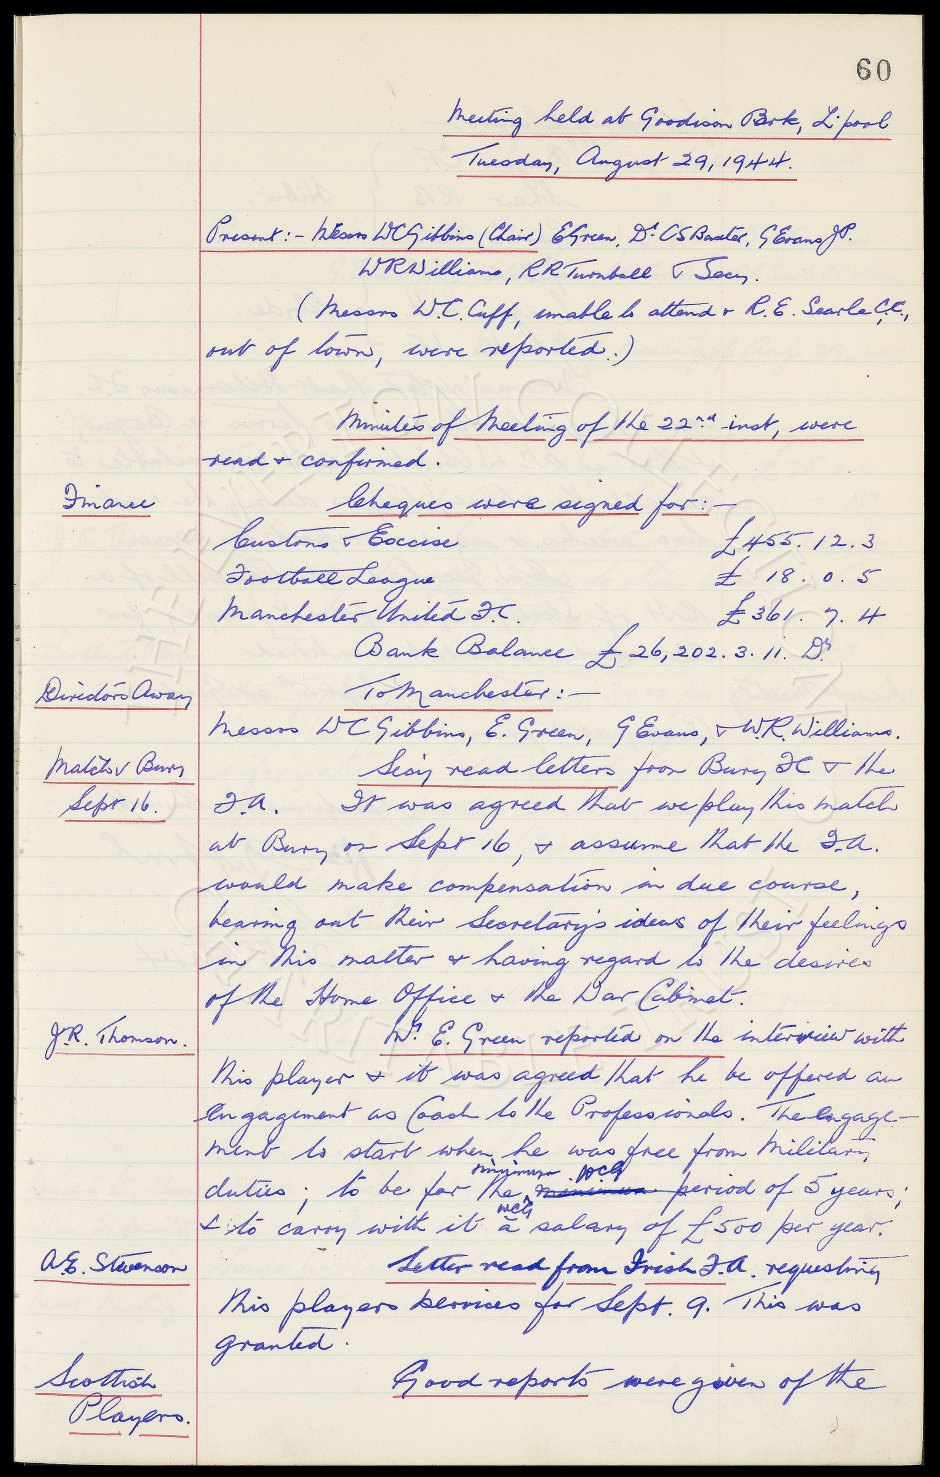 60
Meeting held at Goodison Park, L'pool
Tuesday, August 29, 1944.
Present:- Messrs W C Gibbins (Chair) E Green, Dr. C S Baxter, G Evans J.P.
W R Williams, R R Turnbull & Secy.
(Messrs W. C. Cuff, unable to attend & R. E. Searle C.C.,
out of town, were reported.)
Minutes of Meeting of the 22nd inst, were
read & confirmed.
Finance Cheques were signed for:-
Customs & Excise £455. 12. 3
Football League £ 18. 0. 5
Manchester United F.C. £361. 7. 4
Bank Balance £26,202. 3. 11. Dr
Directors Away To Manchester:-
Messrs W C Gibbins, E. Green, G Evans, & W. R. Williams.
Match v Bury Secy read letters from Bury F C & the
Sept 16. F.A. It was agreed that we play this match
at Bury on Sept 16, & assume that the F.A.
would make compensation in due course,
bearing out their Secretary's ideas of their feelings
in this matter & having regard to the desires
of the Home Office & the War Cabinet.
J. R. Thomson. Mr. E. Green reported on the interview with
this player & it was agreed that he be offered an
engagement as Coach to the Professionals. The engage-
ment to start when he was free from Military
minimum WCG
duties; to be for the minimum period of 5 years;
WCG
& to carry with it a salary of £500 per year.
A. E. Stevenson Letter read from Irish F. A. requesting
this players services for Sept. 9. This was
granted.
Scottish Good reports were given of the
Players.